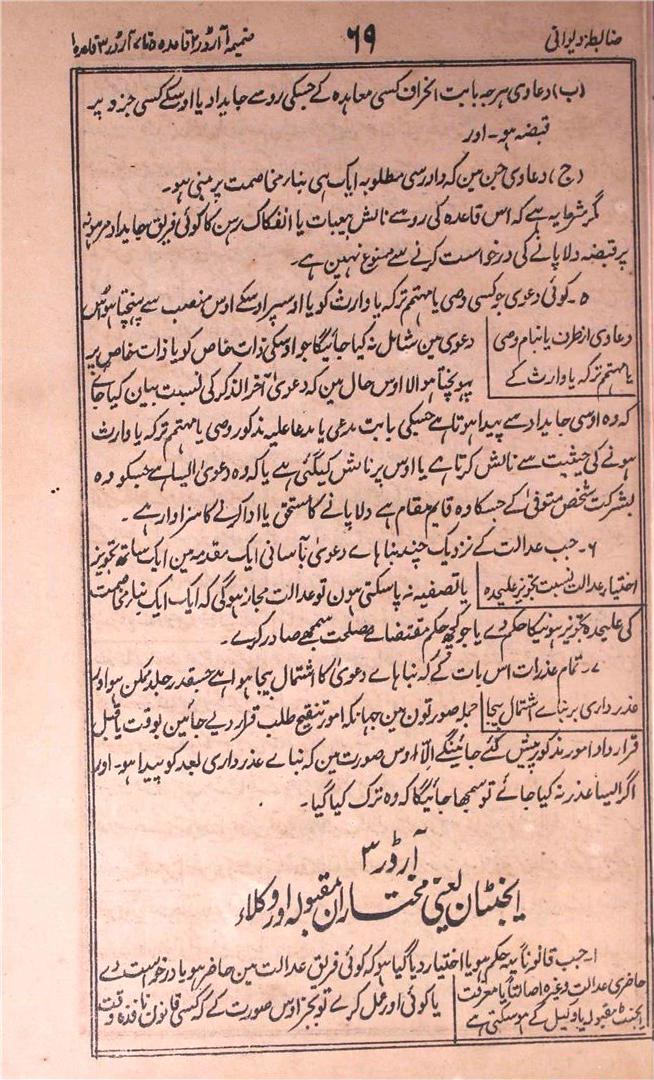 ضابطہ دیوانی
۶۹
ضمیمہ ۱ آرڈر ۲ قاعدہ ۵ تا ۷ آرڈر ۳ قاعدہ ۱
(ب) دعاوی ہرجہ بابت انحراف کسی معاہدہ کے جسکی رو سے جایداد یا اوسکے کسی جزو پر
قبضہ ہو۔ اور
(ج) دعاوی جن مین کہ دادرسی مطلوبہ ایک ہی بناء مخاصمت پر مبنی ہو۔
مگر شرط یہ ہے کہ اس قاعدہ کی رو سے نالش بیعبات یا انفکاک رہن کا کوئی فریق جایداد مرہونہ
پر قبضہ دلا پانے کی درخواست کرنے سے ممنوع نہین ہے۔
۵۔ کوئی دعوی جو کسی وصی یا مہتم ترکہ یا وارث کو یا اوسپر اوسکے اوس منصب سے پہنچتا ہو اُس
دعاوی از طرف یا بنام وصی
یا مہتم ترکہ یا وارث کے
دعوی مین شامل نہ کیا جائیگا جو اوسکی ذات خاص کو یا ذات خاص پر
پہونچتا ہو الا اوس حال مین کہ دعویٰ آخر الذکر کی نسبت بیان کیا جائے
کہ وہ اوسی جایداد سے پیدا ہوتا ہے جسکی بابت مدعی یا مدعا علیہ مذکور وصی یا مہتم ترکہ یا وارث
ہونے کی حیثیت سے نالش کرتا ہے یا اوس پر نالش کیگئی ہے یا کہ وہ دعویٰ ایسا ہے جسکو وہ
بشرکت شخص متوفی کے جسکا وہ قایم مقام ہے دلا پانے کا مستحق یا ادا کرنے کا سزاوار ہے۔
۶۔ جب عدالت کے نزدیک چند بنا ہاے دعویٰ بآسانی ایک مقدمہ مین ایک ساتھ تجویز
اختیار عدالت نسبت تجویز علیحدہ
یا تصفیہ نہ پا سکتی ہون تو عدالت مجاز ہوگی کہ ایک ایک بناء مخاصمت
کی علیحدہ تجویز ہونیکا حکم دے یا جو کچھ حکم مقتضاے مصلحت سمجھے صادر کرے۔
۷۔ تمام عذرات اس بات کے کہ بنا ہاے دعویٰ کا اشتمال بیجا ہوا ہے جسقدر جلد ممکن ہو اور
عذرداری بر بناے اشتمال بیجا
جملہ صورتون مین جہانکہ امور تنقیح طلب قرار دیے جائین بوقت یا قبل
قرارداد امور مذکور پیش کئے جائینگے الّا اوس صورت مین کہ بناے عذرداری بعد کو پیدا ہو۔ اور
اگر ایسا عذر نہ کیا جائے تو سمجھا جائیگا کہ وہ ترک کیا گیا۔
آرڈر ۳
ایجنٹان یعنی مختاران مقبولہ اور وکلاء
۱۔ جب قانوناً یہ حکم ہو یا اختیار دیا گیا ہو کہ کوئی فریق عدالت مین حاضر ہو یا درخواست دے
حاضری عدالت وغیرہ اصالتاً یا معرفت
ایجنٹ مقبولہ یا وکیل کے ہو سکتی ہے
یا کوئی اور عمل کرے تو بجز اوس صورت کے کہ کسی قانون نافذہ وقت